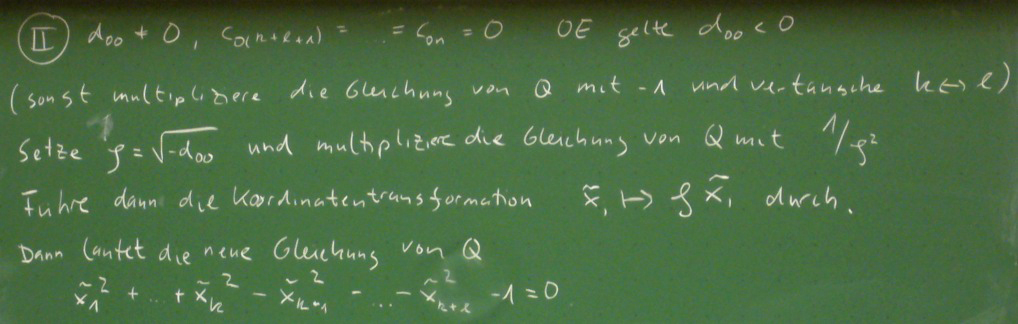 (II) d₀₀ ≠ 0, c₀₍ₖ₊ₗ₊₁₎ = ... = c₀ₙ = 0 OE gelte d₀₀ < 0
(sonst multipliziere die Gleichung von Q mit -1 und vertausche k ↔ l)
Setze ρ = √-d₀₀ und multipliziere die Gleichung von Q mit 1/ρ²
Führe dann die Koordinatentransformation x̃ᵢ ↦ ρ x̃ᵢ durch.
Dann lautet die neue Gleichung von Q
x̃₁² + ... + x̃ₖ² - x̃ₖ₊₁² - ... - x̃ₖ₊ₗ² - 1 = 0